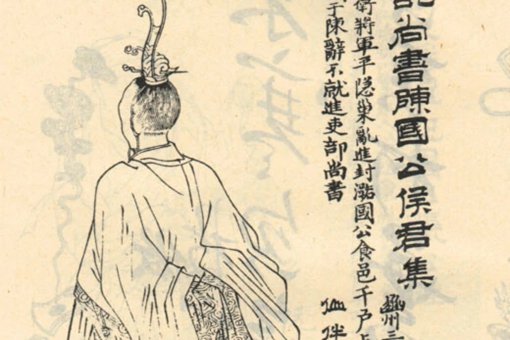 尚書陳國公侯君集
豳州三
衛將軍平隱巢亂進封潞國公食邑千戶
子陳辭不就進吏部尚書
伴